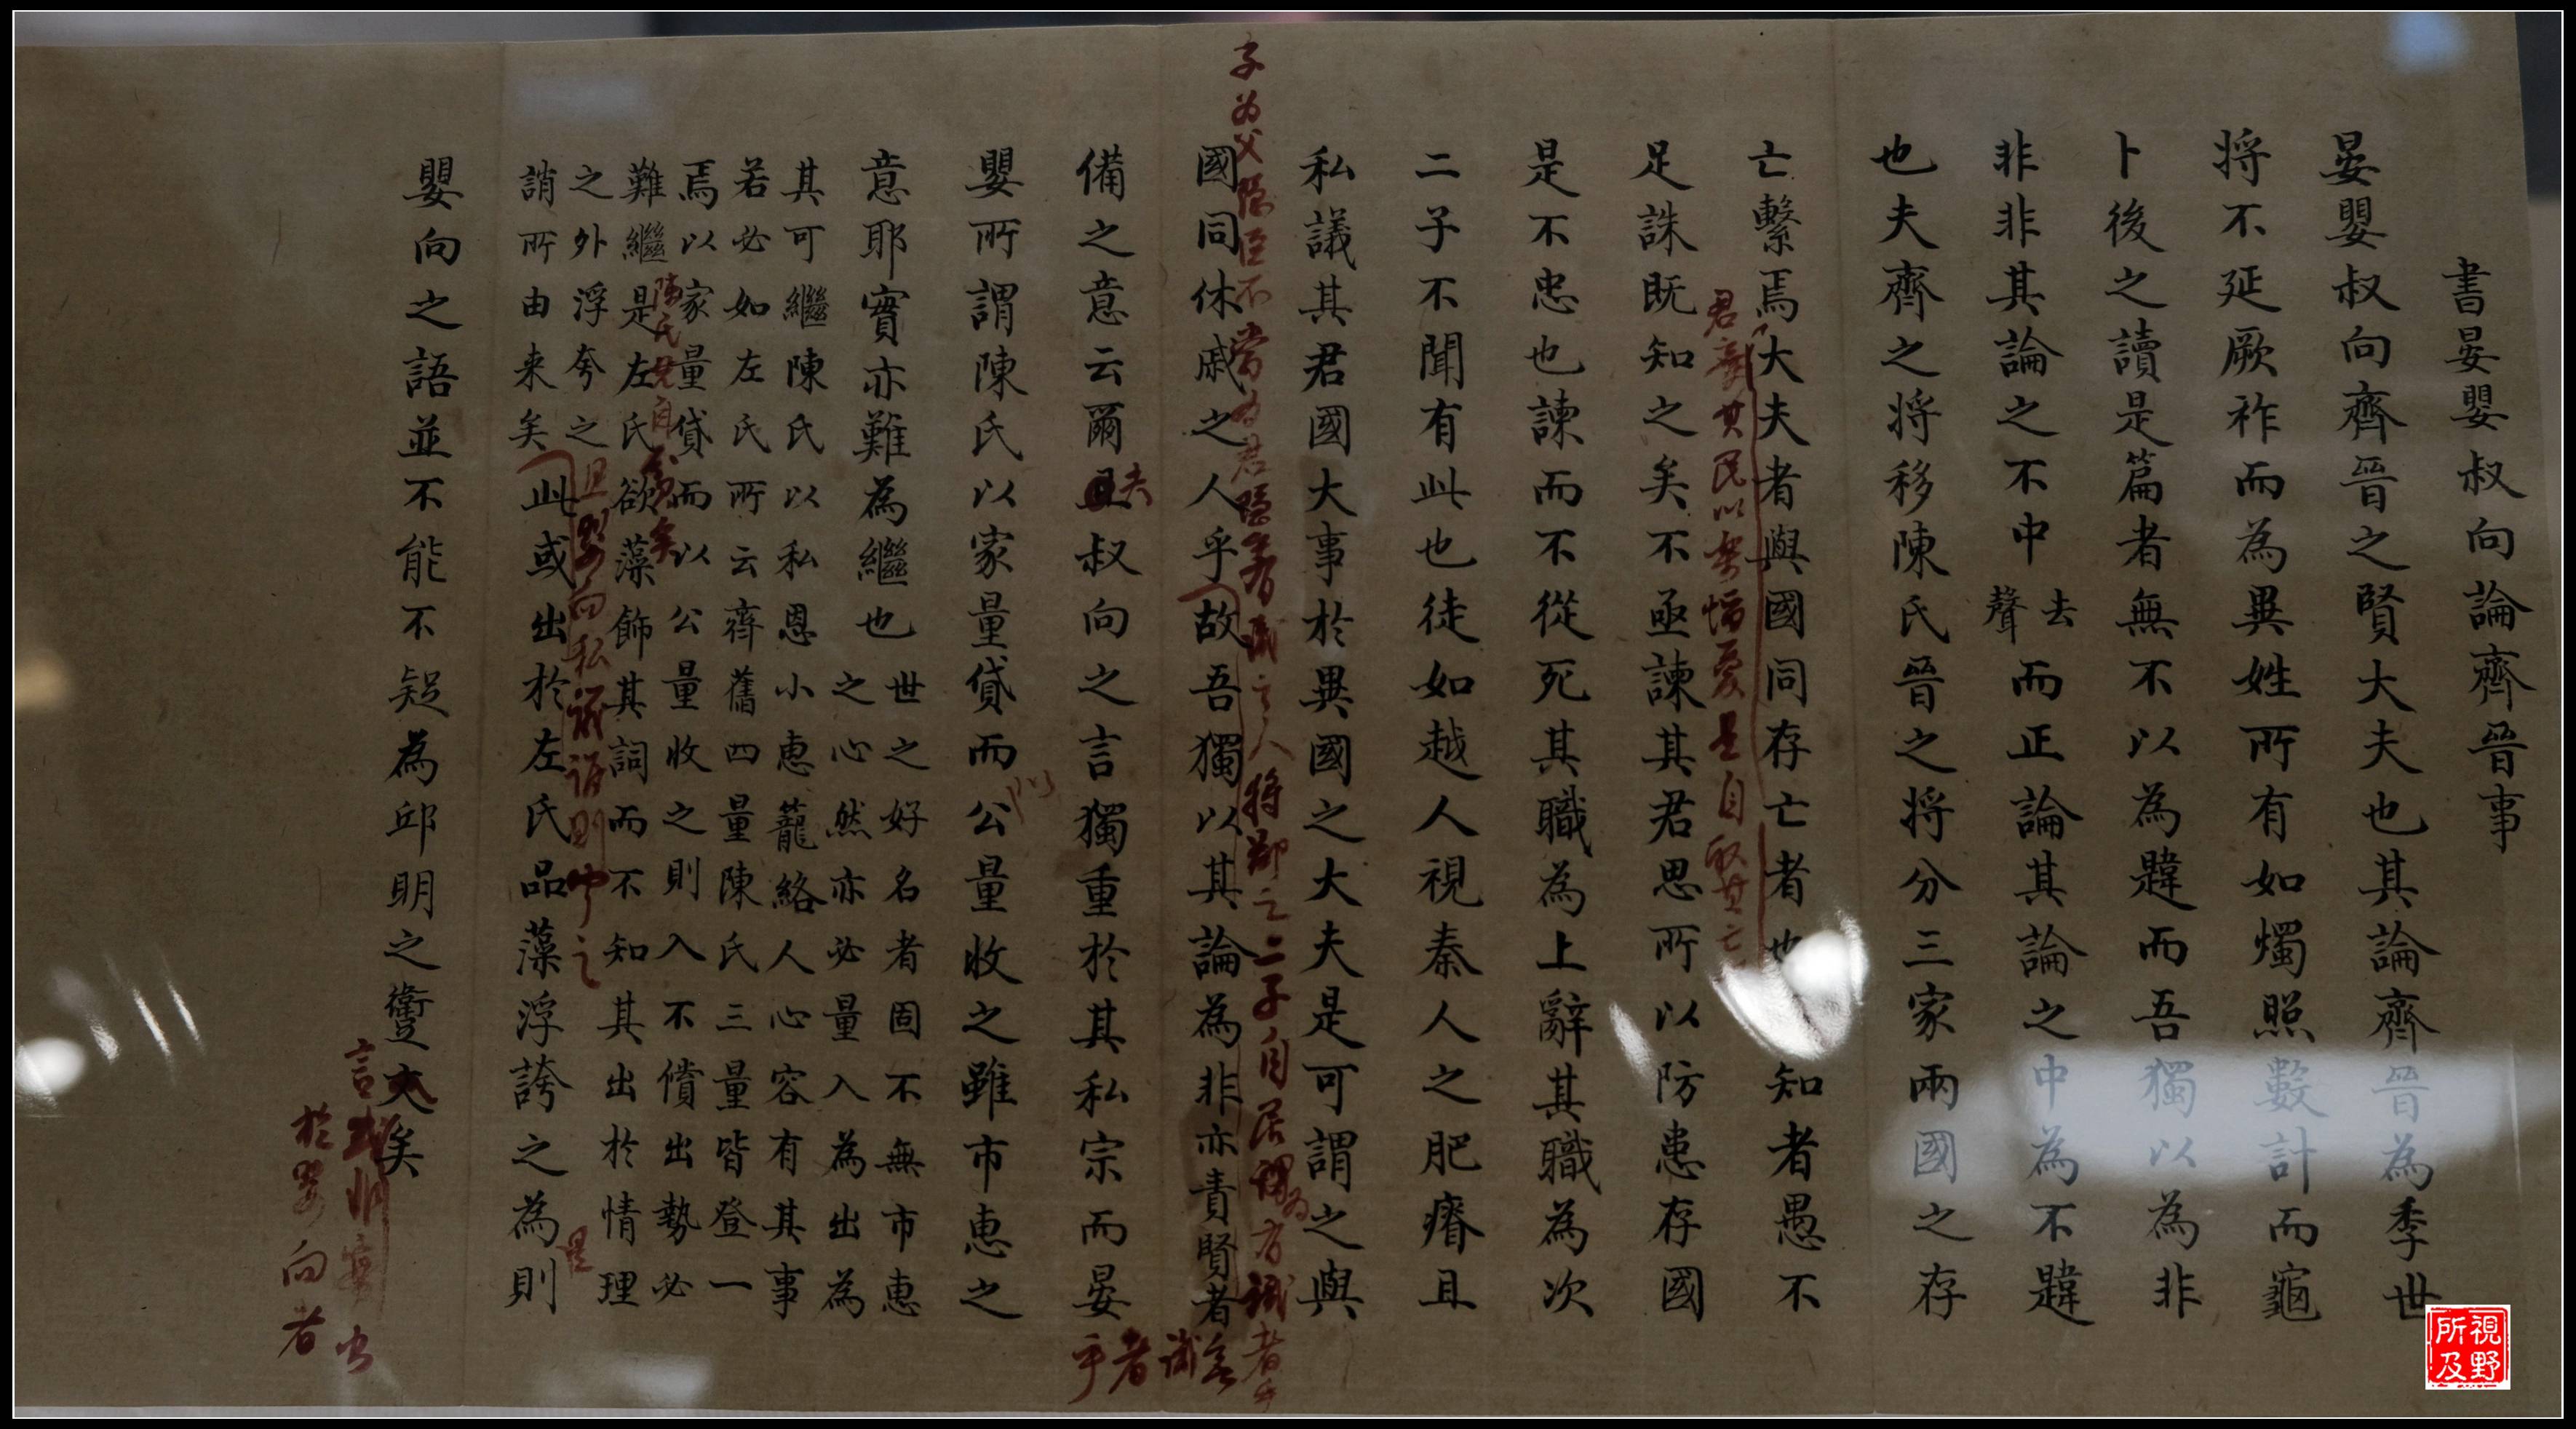 書晏嬰叔向論齊晉事
晏嬰叔向齊晉之賢大夫也其論齊晉為季世
將不延厥祚而為異姓所有如燭照數計而龜
卜後之讀是篇者無不以為韙而吾獨以為非
非非其論之不中去聲而正論其論之中為不韙
也夫齊之將移陳氏晉之將分三家兩國之存
亡繫焉大夫者與國同存亡者也知者愚不
君棄其民以樂慆憂是自取其亡
足誅既知之矣不亟諫其君思所以防患存國
是不忠也諫而不從死其職為上辭其職為次
二子不聞有此也徒如越人視秦人之肥瘠且
私議其君國大事於異國之大夫是可謂之與
子為父隱臣不當為君隱者
將鄙之二子自居謂為有識者乎
國同休戚之人乎故吾獨以其論為非亦責賢者
備之意云爾且叔向之言獨重於其私宗而晏
夫
嬰所謂陳氏以家量貸而公量收之雖市惠之
以
意耶實亦難為繼也世之好名者固不無市惠
之心然亦必量入為出為
其可繼陳氏以私恩小惠蘢絡人心容有其事
若必如左氏所云齊舊四量陳氏三量皆登一
焉以家量貸而以公量收之則入不償出勢必
難繼是左氏欲藻飾其詞而不知其出於情理
之外浮夸之
誚所由來矣此或出於左氏品藻浮誇之為則
是
嬰向之語並不能不疑為邱明之讆矣
於嬰向者
視野所及